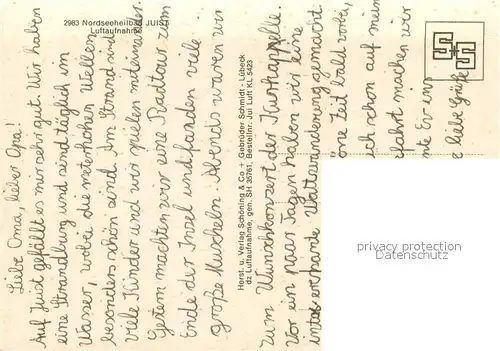 2983 Nordseeheilbad JUIST
Luftaufnahme
Liebe Oma, lieber Opa!
Auf Juist gefällt es mir sehr gut. Wir haben
eine Strandburg und sind täglich im
Wasser, wobei die meterhohen Wellen
besonders schön sind. Am Strand sind
viele Kinder und wir spielen miteinander.
Gestern machten wir eine Radtour zum
Ende der Insel und fanden viele
große Muscheln. Abends waren wir
Herst. u. Verlag Schöning & Co + Gebrüder Schmidt - Lübeck
dz Luftaufnahme, gen. SH 35761, Bestellnr. Jui Luft KL 5423
zum Wunschkonzert der Kurkapelle
Vor ein paar Tagen haben wir eine
interessante Wattwanderung gemacht.
öne Zeit bald vorbei,
ich schon auf mein
fahrt machen wir
liebe Grüße
privacy protection
datenschutz